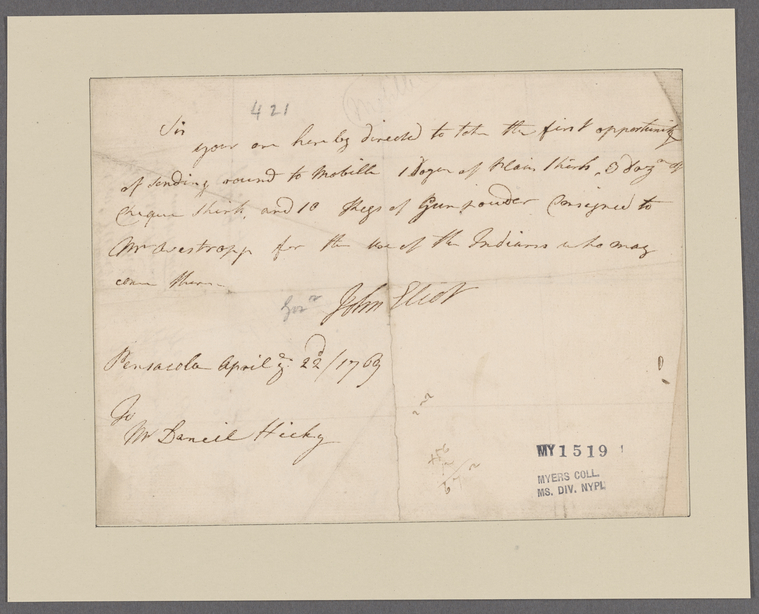 421
Sir
your are hereby directed to take the first opportunity
of sending round to Mobille 1 Dozen of plain Shirts, 3 Doz:n of
Cheque Shirts, and 10 Kegs of Gunpowder Consigned to
Mr Westropp for the Use of the Indians who may
come there.
Govr John Eliot
Pensacola April ye 22d/1769
To
Mr Daneil Hicky
MY 1519
MYERS COLL.
MS. DIV. NYPL